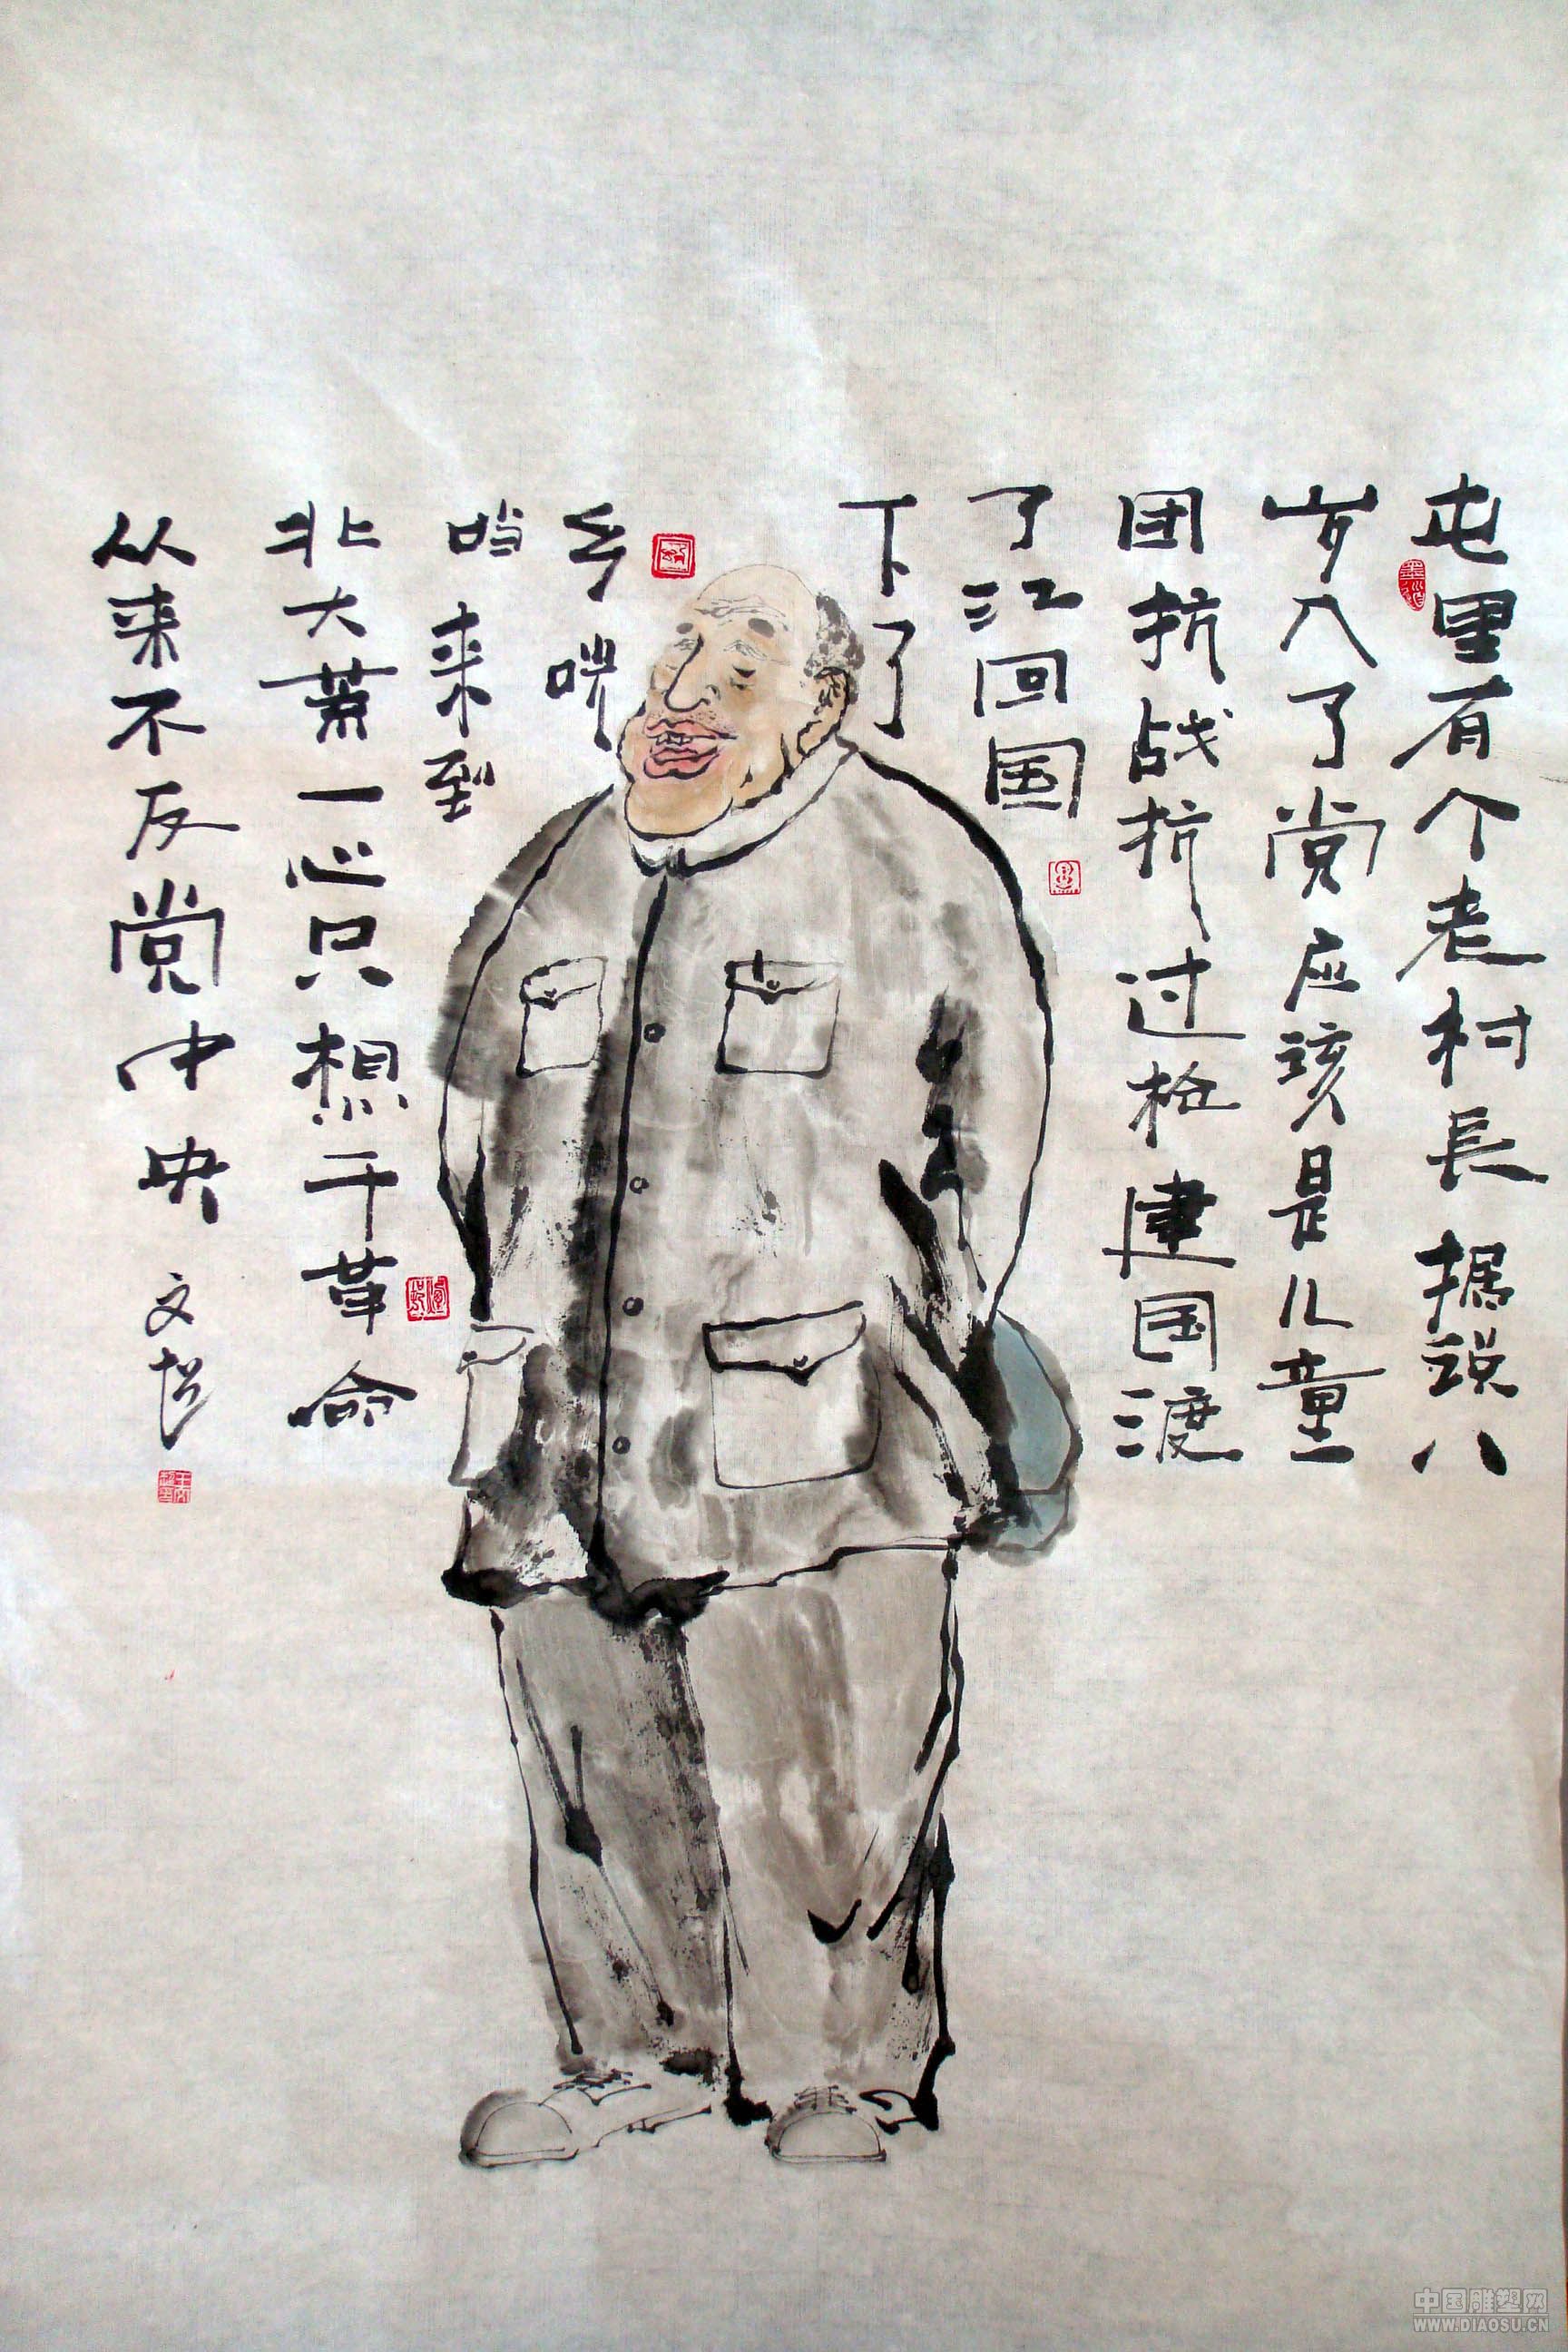 屯里有个老村長据说八
岁入了党应该是儿童
团抗战抗过枪建国渡
了江回国
下了
乡咣
当来到
北大荒一心只想干革命
从来不反党中央 文
中国雕塑网
WWW.DIAOSU.CN